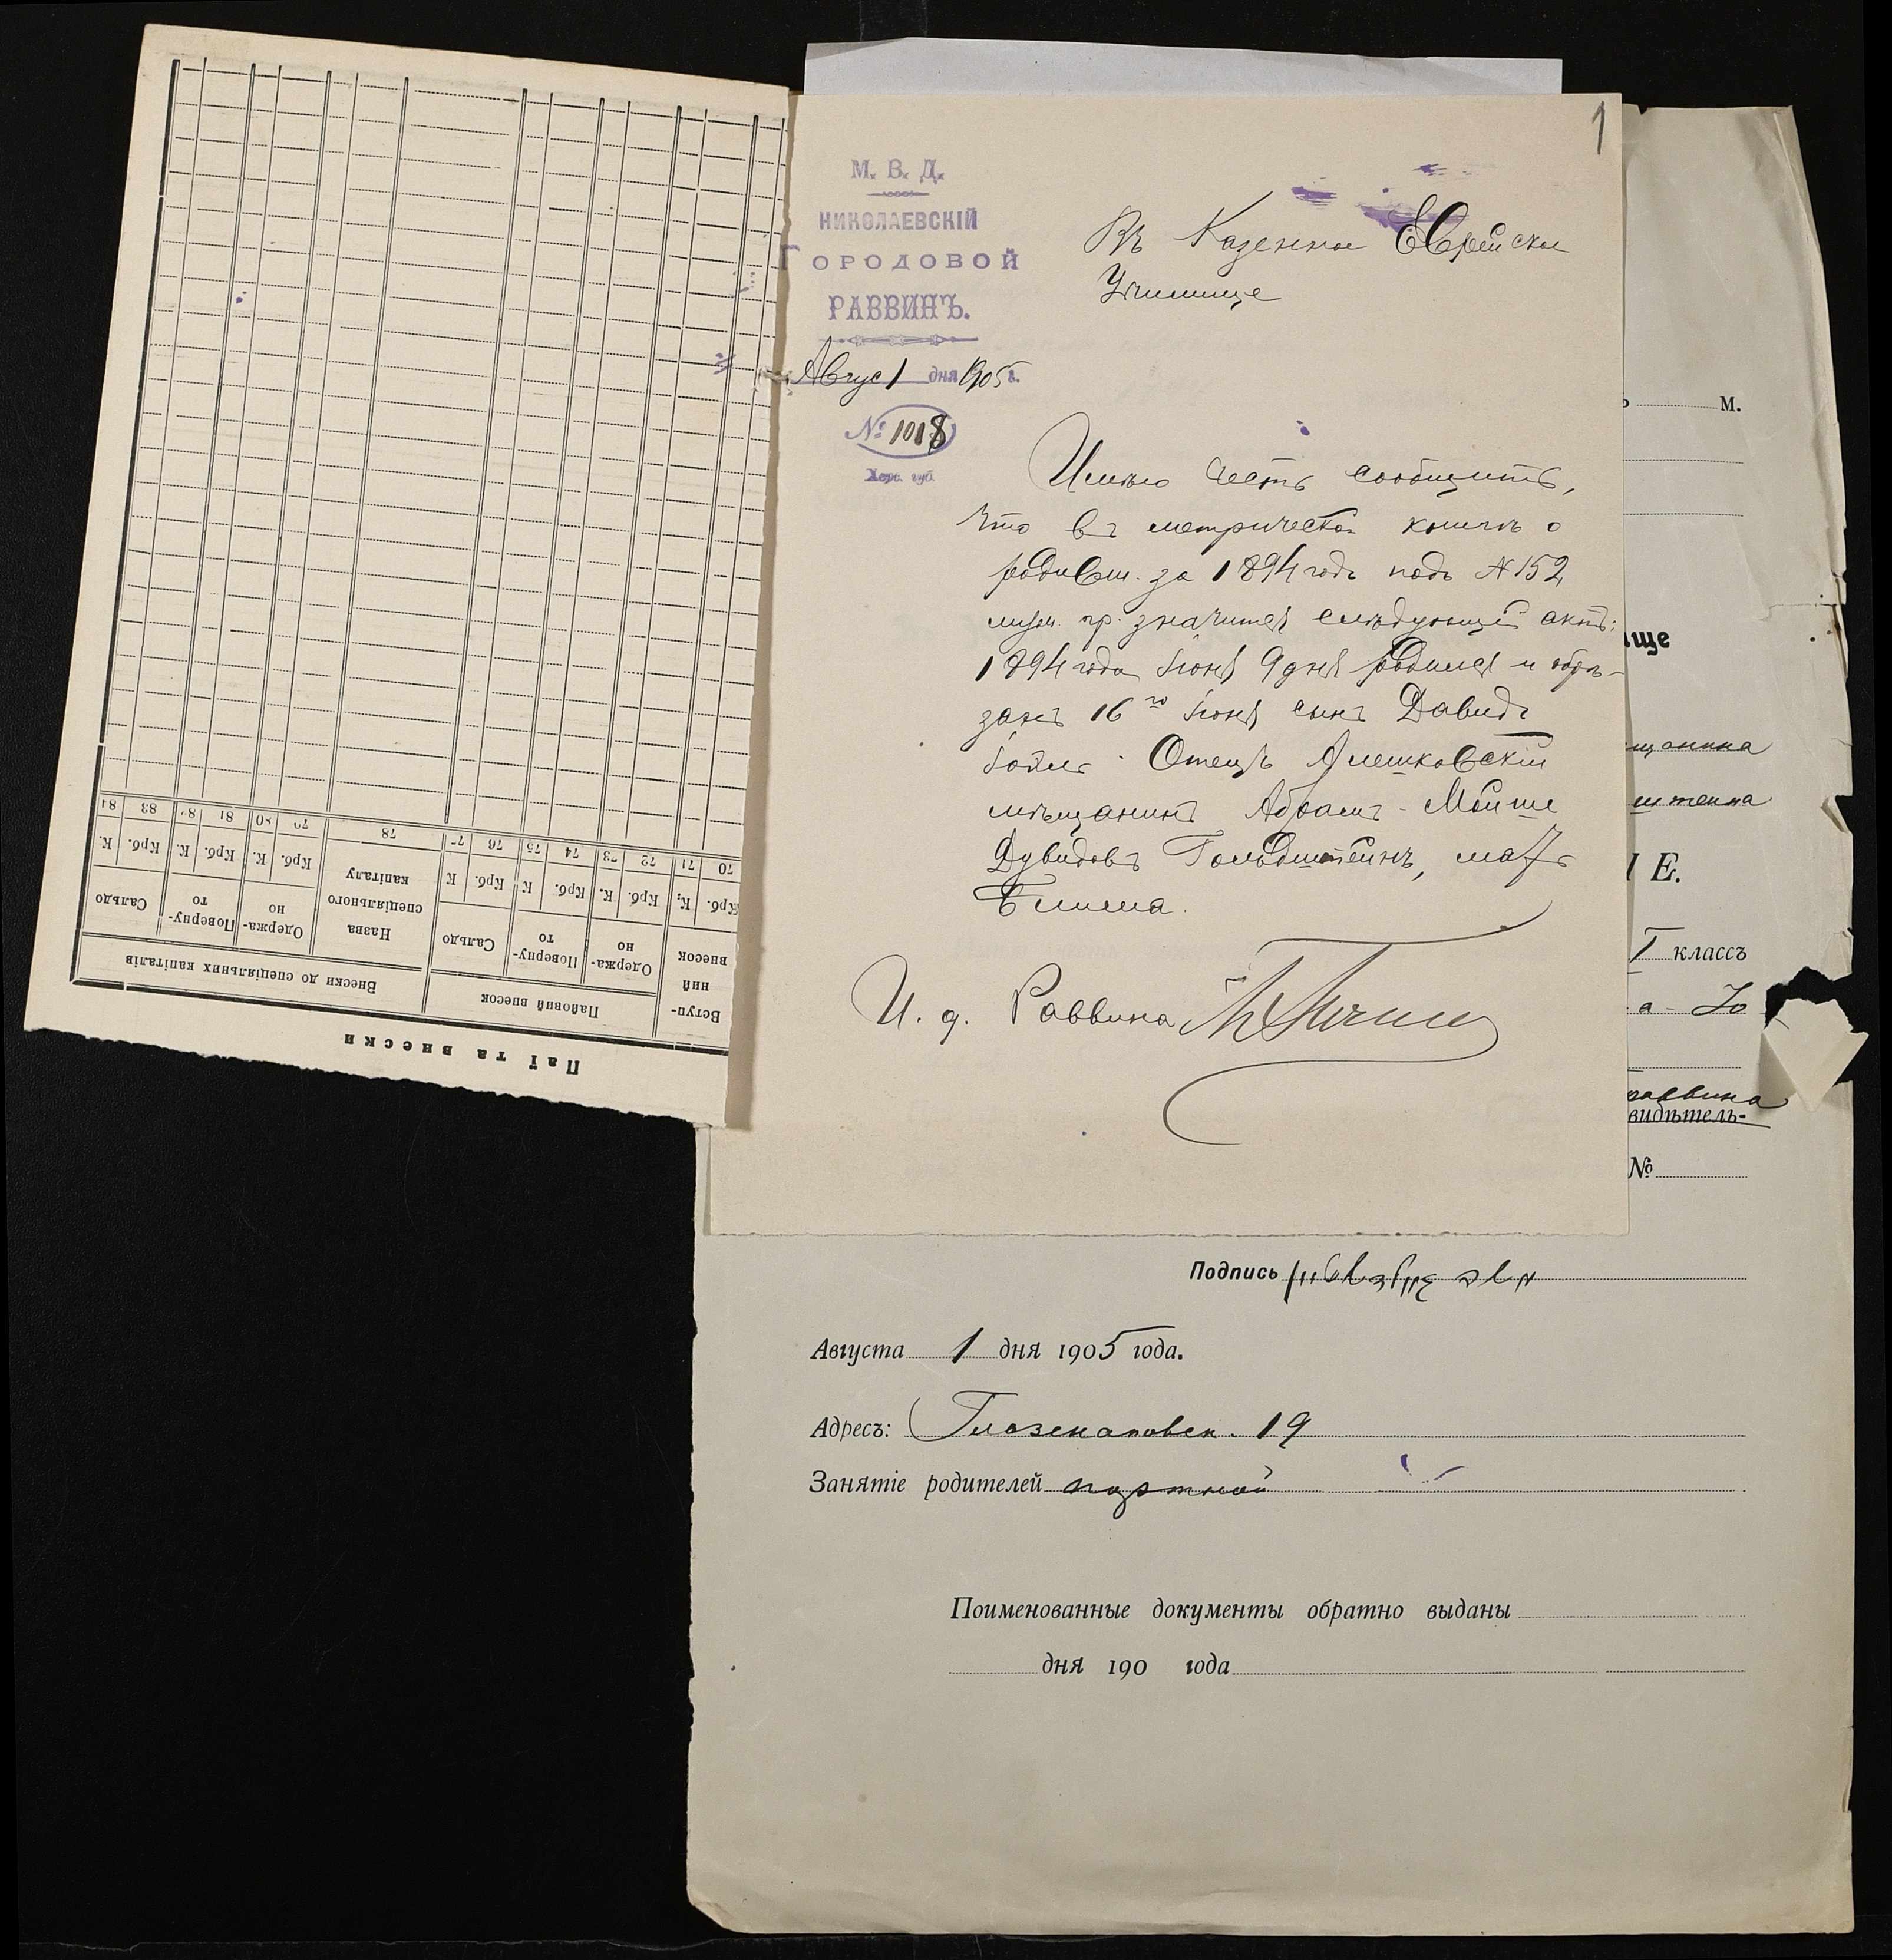 1
М. В. Д.
НИКОЛАЕВСКІЙ
ГОРОДОВОЙ
РАВВИНЪ.
Авгус 1 дня 1905 г.
№ 1018
Херс. губ.
Въ Казенное Еврейское
Училище
Имѣю честь сообщить,
что въ метрической книгѣ о
родивш. за 1894 годъ подъ № 152
муж. пр. значится слѣдующій актъ:
1894 года Іюня 9 дня родился и обрѣ-
занъ 16го Іюня сынъ Давидъ
Іойлъ. Отецъ Алешковскій
мѣщанинъ Абрамъ-Мойше
Дувидовъ Гольдштейнъ, мать
Блима.
И. д. Раввина
М.
ище
щанина
штейна
І Е.
I классъ
а - Іо
раввина
видѣтель-
№
Подпись
Августа 1 дня 1905 года.
Адресъ: Глазенаповск. 19
Занятіе родителей портной
Поименованные документы обратно выданы
дня 190 года
Паї та внески
Вступ-
ний
внесок
Пайовий внесок
Внески до спеціяльних капіталів
Одержа-
но
Поверну-
то
Сальдо
Назва
спеціяльного
капіталу
Одержа-
но
Поверну-
то
Сальдо
Крб. К. Крб. К. Крб. К Крб. К Крб. К. Крб. К. Крб. К
70 71 72 73 74 75 76 77 78 79 80 81 82 83 84